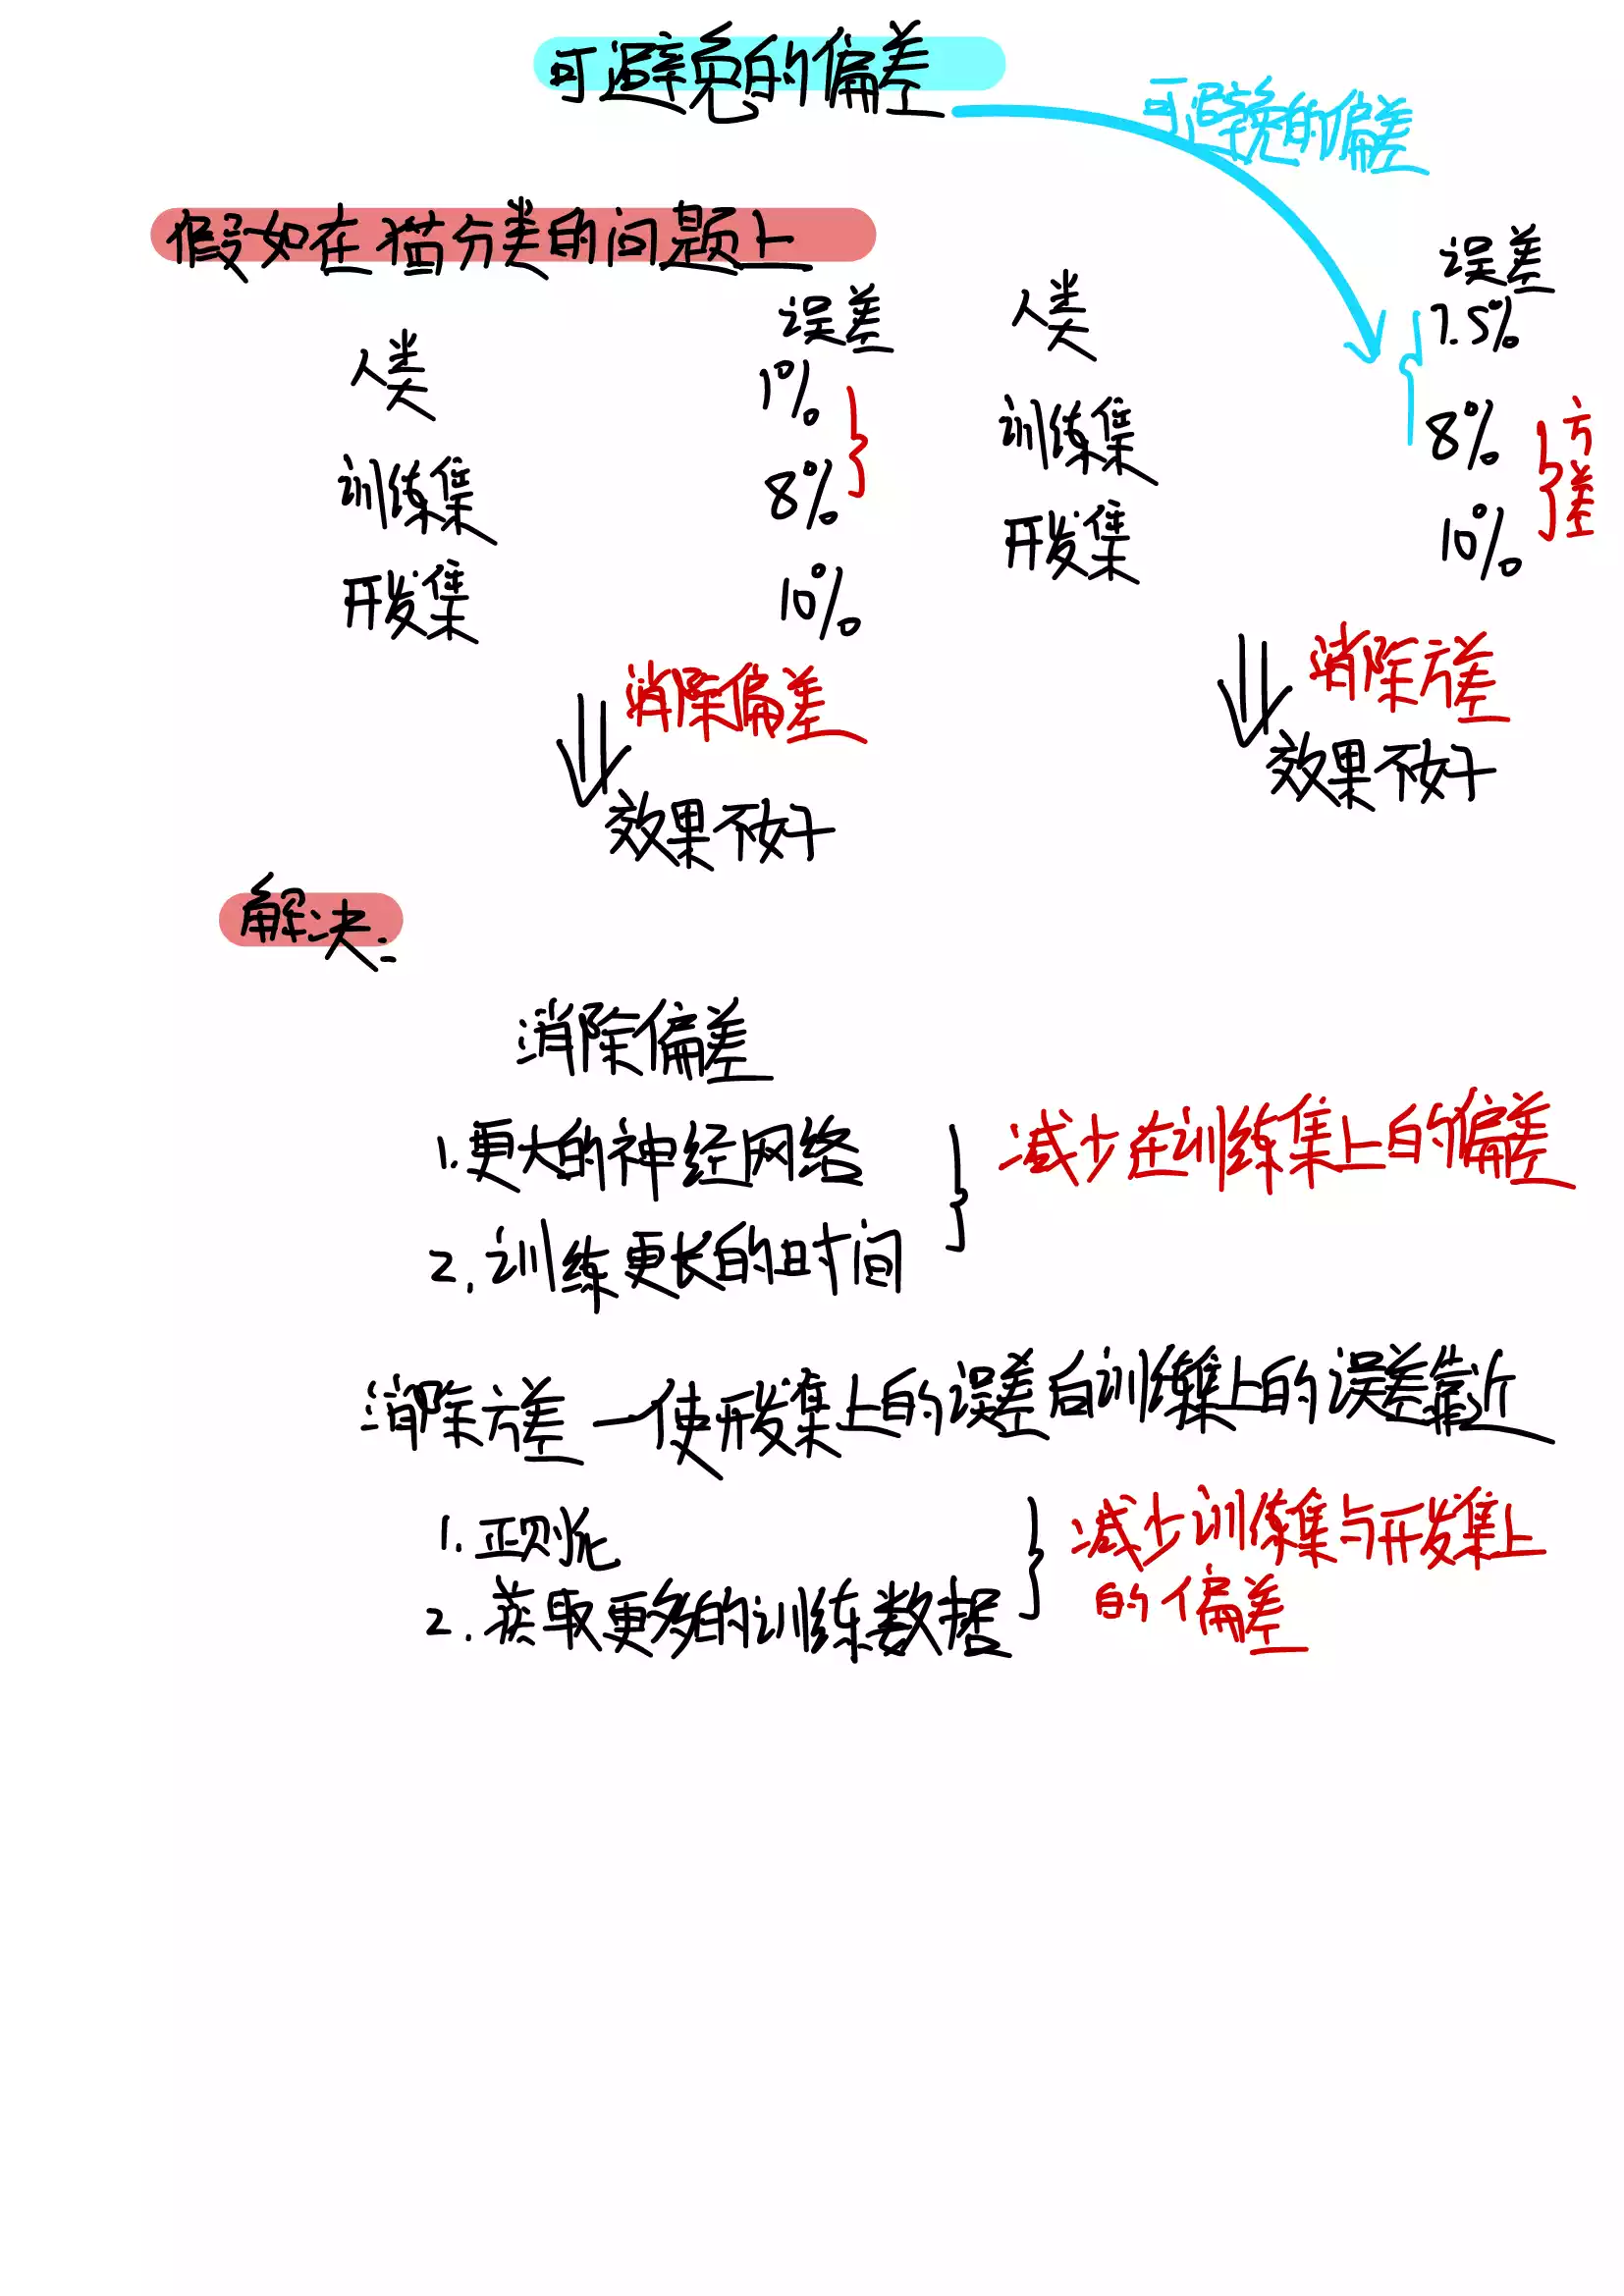 可避免的偏差
可避免的偏差
假如在猫分类的问题上
误差
人类 1%
训练集 8%
开发集 10%
消除偏差
效果不好
误差
人类 7.5%
训练集 8%
开发集 10%
方差
消除方差
效果不好
解决:
消除偏差
1.更大的神经网络
2.训练更长的时间
减少在训练集上的偏差
消除方差—使开发集上的误差向训练集上的误差靠近
1.正则化
2.获取更多的训练数据
减少训练集与开发集上
的偏差